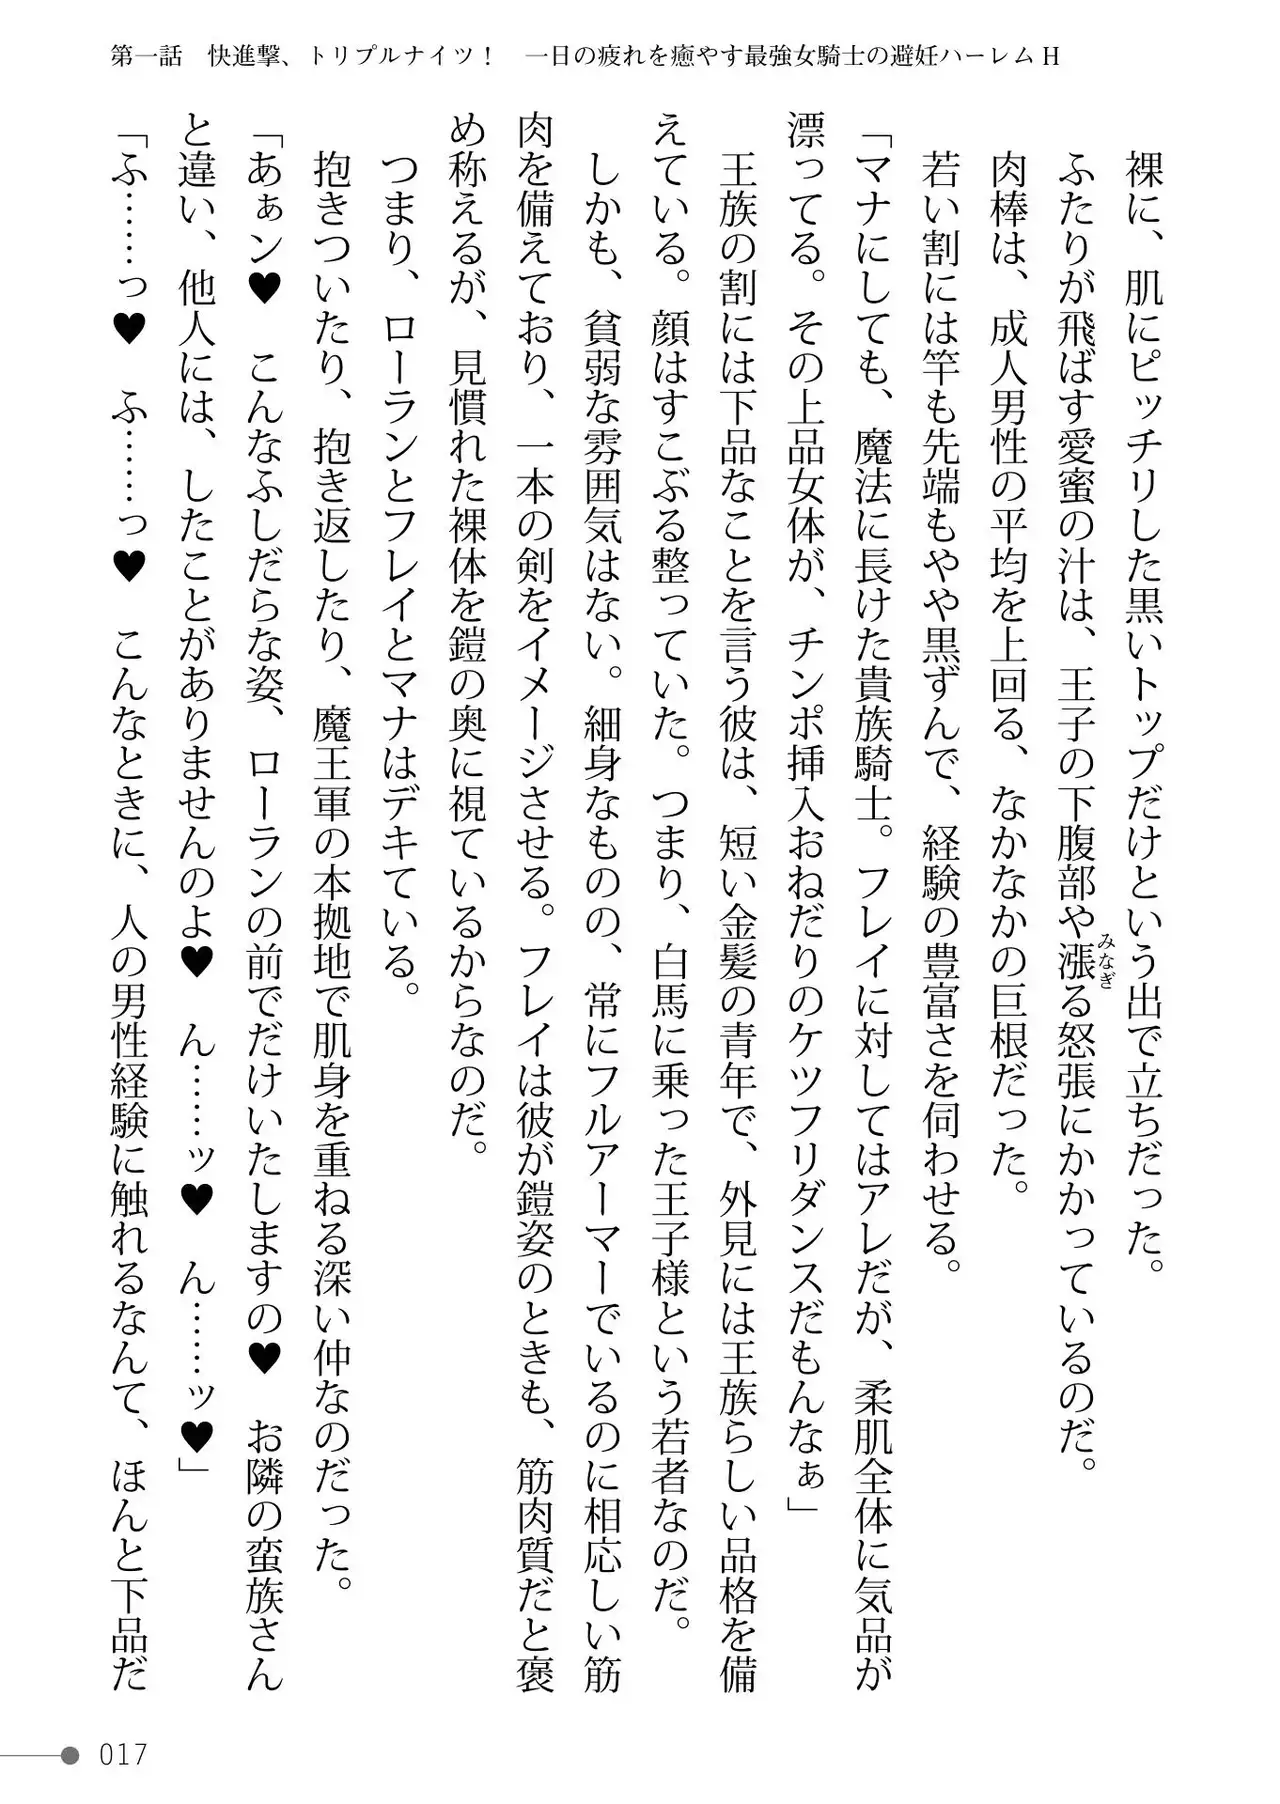 第一話　快進撃、トリプルナイツ！　一日の疲れを癒やす最強女騎士の避妊ハーレムH
裸に、肌にピッチリした黒いトップだけという出で立ちだった。
ふたりが飛ばす愛蜜の汁は、王子の下腹部や漲る怒張にかかっているのだ。
みなぎ
肉棒は、成人男性の平均を上回る、なかなかの巨根だった。
若い割には竿も先端もやや黒ずんで、経験の豊富さを伺わせる。
「マナにしても、魔法に長けた貴族騎士。フレイに対してはアレだが、柔肌全体に気品が
漂ってる。その上品女体が、チンポ挿入おねだりのケツフリダンスだもんなぁ」
王族の割には下品なことを言う彼は、短い金髪の青年で、外見には王族らしい品格を備
えている。顔はすこぶる整っていた。つまり、白馬に乗った王子様という若者なのだ。
しかも、貧弱な雰囲気はない。細身なものの、常にフルアーマーでいるのに相応しい筋
肉を備えており、一本の剣をイメージさせる。フレイは彼が鎧姿のときも、筋肉質だと褒
め称えるが、見慣れた裸体を鎧の奥に視ているからなのだ。
つまり、ローランとフレイとマナはデキている。
抱きついたり、抱き返したり、魔王軍の本拠地で肌身を重ねる深い仲なのだった。
「あぁン♥　こんなふしだらな姿、ローランの前でだけいたしますの♥　お隣の蛮族さん
と違い、他人には、したことがありませんのよ♥　ん……ッ♥　ん……ッ♥」
「ふ……っ♥　ふ……っ♥　こんなときに、人の男性経験に触れるなんて、ほんと下品だ
017